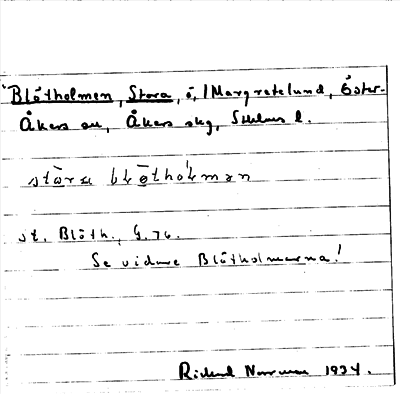 Blötholmen, Stora, ö, /Margretelund, Öster-
Åkers sn, Åkers skg, Sthlms l.
stōra blø̄thoḷmən
st. Blöth., G. 76.
Se vidare Blötholmarna!
Rickard Norrman 1934.